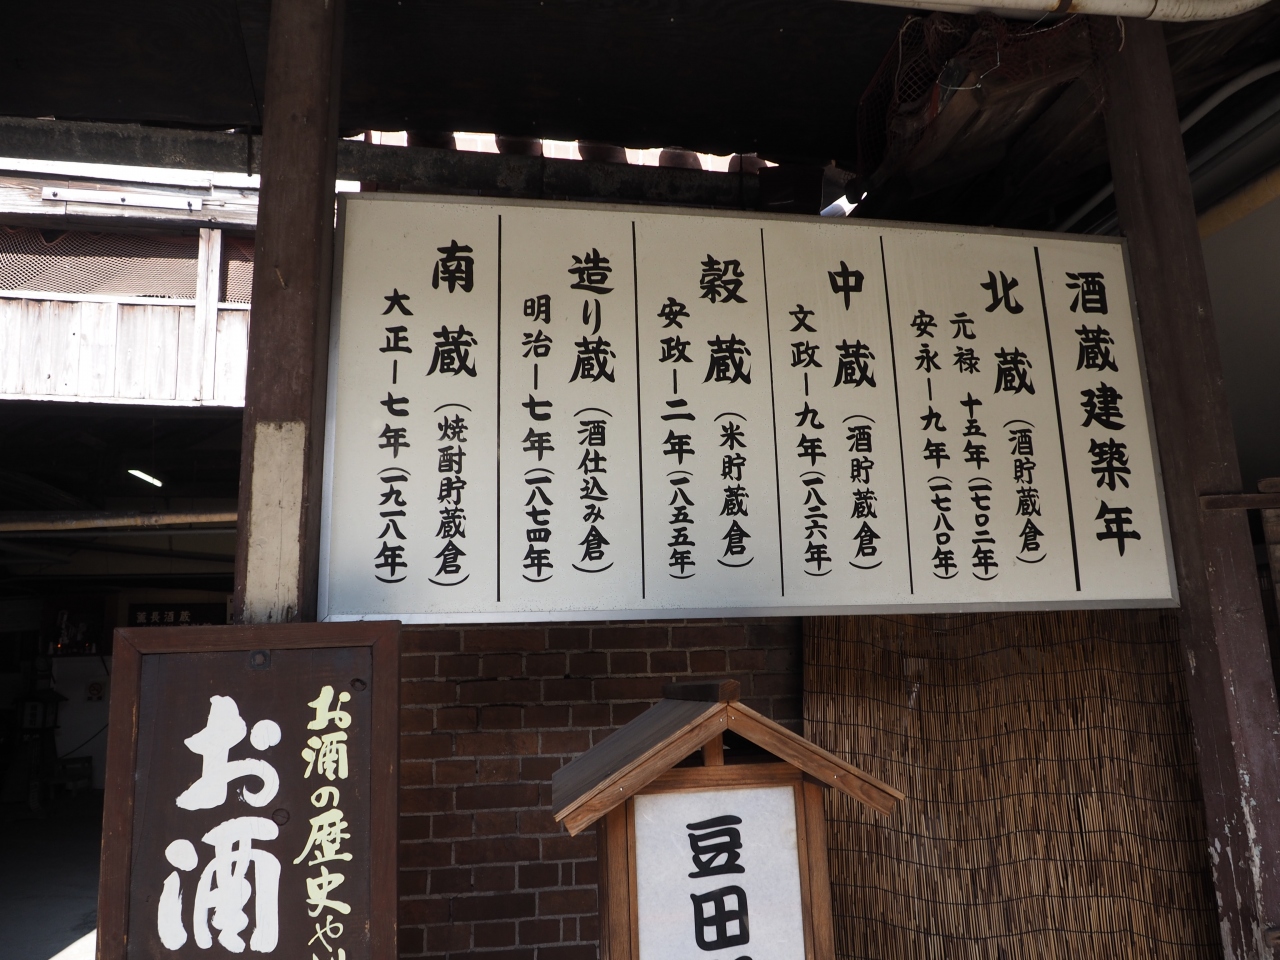 酒蔵建築年
北蔵(酒貯蔵倉)
元禄十五年(一七〇二年)
安永ー九年(一七八〇年)
中蔵(酒貯蔵倉)
文政ー九年(一八二六年)
穀蔵(米貯蔵倉)
安政ー二年(一八五五年)
造り蔵(酒仕込み倉)
明治ー七年(一八七四年)
南蔵(焼酎貯蔵倉)
大正ー七年(一九一八年)
お酒の歴史や
お酒
豆田